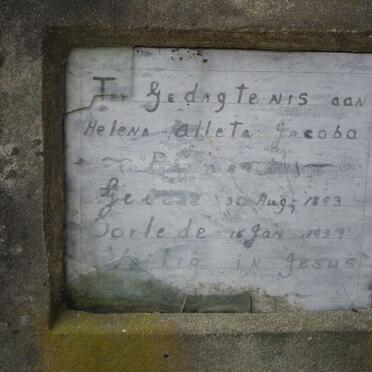 In Gedagtenis aan
Helena Alleta Jacoba
Gebore 30 Aug, 1893
Oorlede 16 Jan 1939
Veilig in Jesus